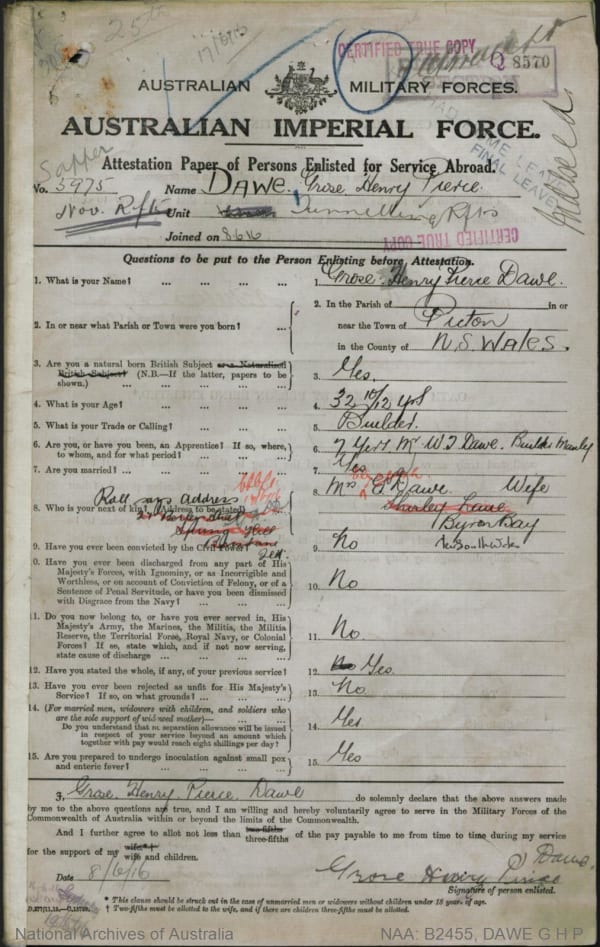 25th
17/6/16
CERTIFIED TRUE COPY
Q 8570
AUSTRALIAN MILITARY FORCES.
AUSTRALIAN IMPERIAL FORCE.
FINAL LEAVE
Attestation Paper of Persons Enlisted for Service Abroad.
Sapper
No. 5975 Name DAWE, Grose Henry Pierce.
Nov. Rfts Unit Tunnelling Rfts
CERTIFIED TRUE COPY
Joined on 8616
Questions to be put to the Person Enlisting before Attestation.
1. What is your Name? ... ... ... ... 1. Grose Henry Pierce Dawe.
2. In or near what Parish or Town were you born? ... 2. In the Parish of in or
near the Town of Picton
in the County of N.S. Wales.
3. Are you a natural born British Subject or a Naturalised
British Subject? (N.B.—If the latter, papers to be
shown.) ... ... ... ... 3. Yes.
4. What is your Age? ... ... ... ... 4. 32 10/12 yrs
5. What is your Trade or Calling? ... ... ... 5. Builder.
6. Are you, or have you been, an Apprentice? If so, where,
to whom, and for what period? ... ... ... 6. 7 yrs Mr W J Dawe. Builder Manly
7. Are you married? ... ... ... ... 7. Yes
Roll says Address
8. Who is your next of kin? (Address to be stated) 8. Mrs Dawe. Wife
Spring Hill
Brisbane
Byron Bay
New South Wales
9. Have you ever been convicted by the Civil Power? 9. No
10. Have you ever been discharged from any part of His
Majesty's Forces, with Ignominy, or as Incorrigible and
Worthless, or on account of Conviction of Felony, or of a
Sentence of Penal Servitude, or have you been dismissed
with Disgrace from the Navy? ... ... ... 10. No
11. Do you now belong to, or have you ever served in, His
Majesty's Army, the Marines, the Militia, the Militia
Reserve, the Territorial Force, Royal Navy, or Colonial
Forces? If so, state which, and if not now serving,
state cause of discharge ... ... ... ... 11. No.
12. Have you stated the whole, if any, of your previous service? 12. No Yes.
13. Have you ever been rejected as unfit for His Majesty's
Service? If so, on what grounds? ... ... 13. No.
14. (For married men, widowers with children, and soldiers who
are the sole support of widowed mother)—
Do you understand that no separation allowance will be issued
in respect of your service beyond an amount which
together with pay would reach eight shillings per day? 14. Yes
15. Are you prepared to undergo inoculation against small pox
and enteric fever? ... ... ... ... 15. Yes
I, Grose Henry Pierce Dawe do solemnly declare that the above answers made
by me to the above questions are true, and I am willing and hereby voluntarily agree to serve in the Military Forces of the
Commonwealth of Australia within or beyond the limits of the Commonwealth.
And I further agree to allot not less than two-fifths three-fifths of the pay payable to me from time to time during my service
for the support of my wife† wife and children.
Date 8/6/16 Grose Henry Pierce Dawe
Signature of person enlisted.
* This clause should be struck out in the case of unmarried men or widowers without children under 18 years of age.
† Two-fifths must be allotted to the wife, and if there are children three-fifths must be allotted.
National Archives of Australia NAA: B2455, DAWE G H P